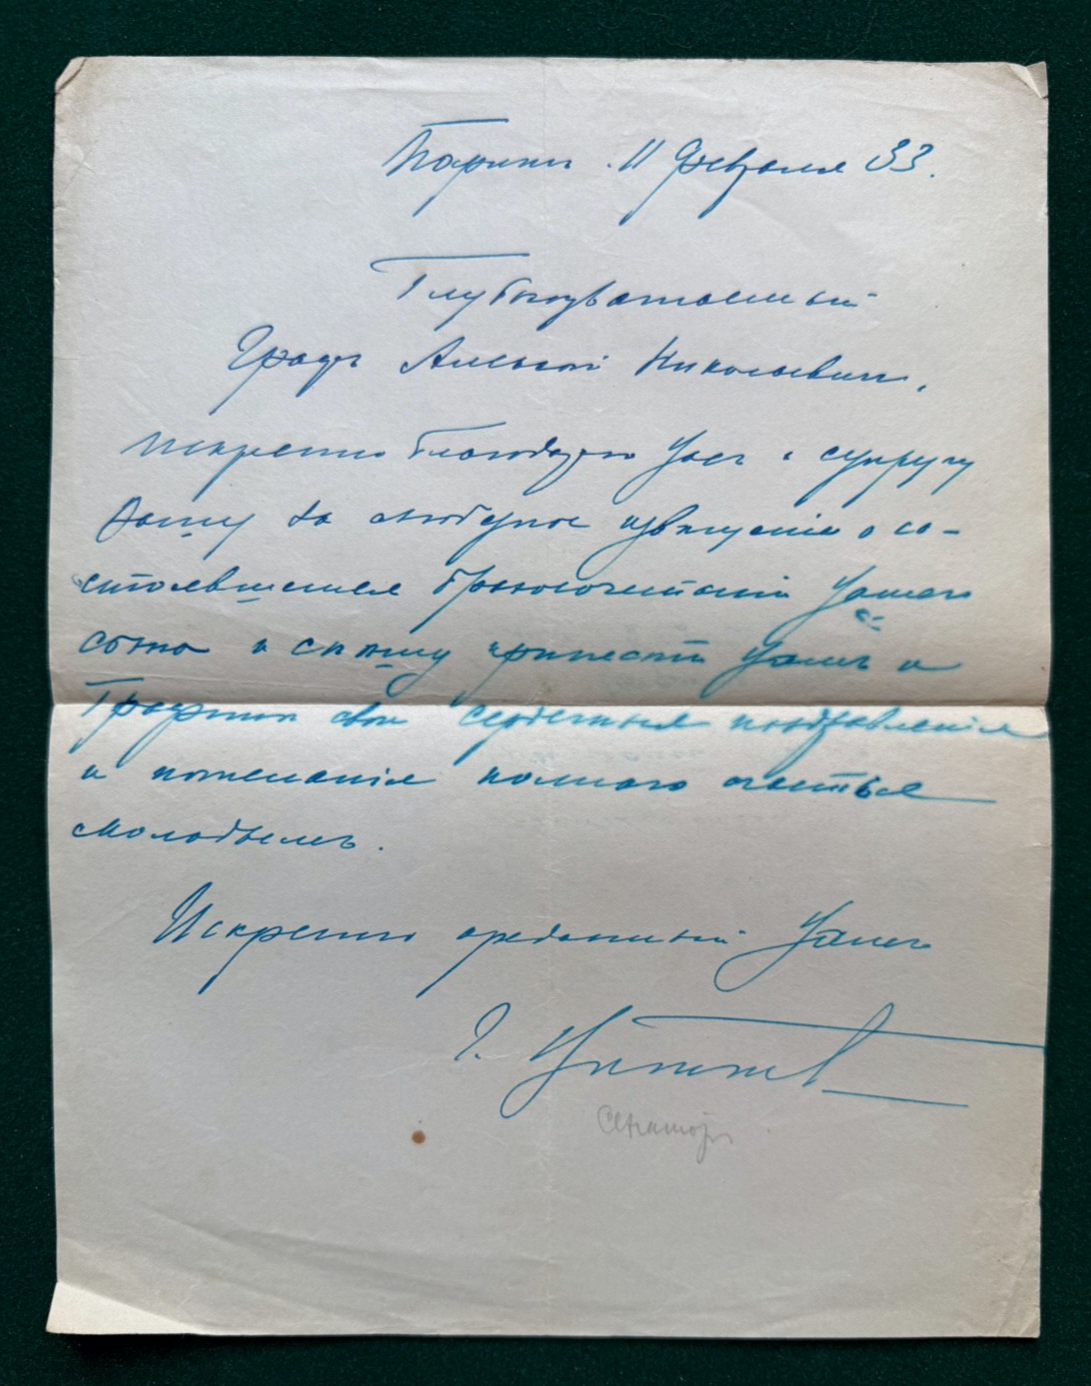 Парижъ. 11 Февраля 33.
Глубокоуважаемый
Графъ Алексѣй Николаевичъ,
искренно благодарю Васъ и супругу
Вашу за любезное извѣщеніе о со-
стоявшемся бракосочетаніи Вашего
сына и спѣшу принести Вамъ и
Графинѣ свои сердечныя поздравленія
и пожеланія полнаго счастья
молодымъ.
Искренно преданный Вамъ
Сенаторъ